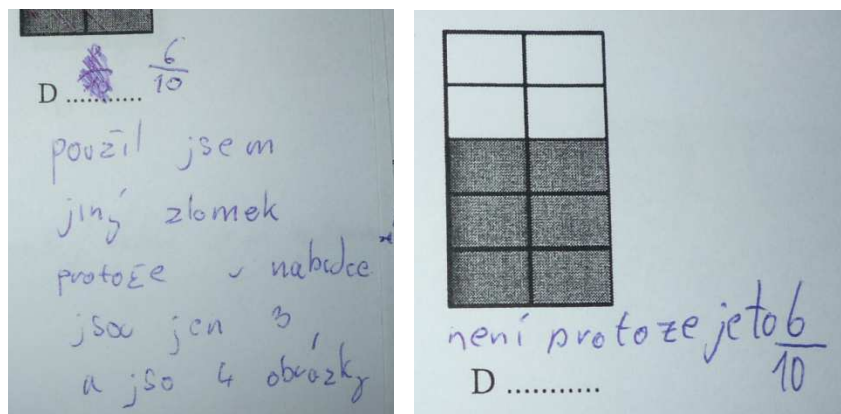 6
D ........... 10
použil jsem
jiný zlomek
protože v nabídce
jsou jen 3,
a jso 4 obrázky
není protoze je to 6
10
D ...........